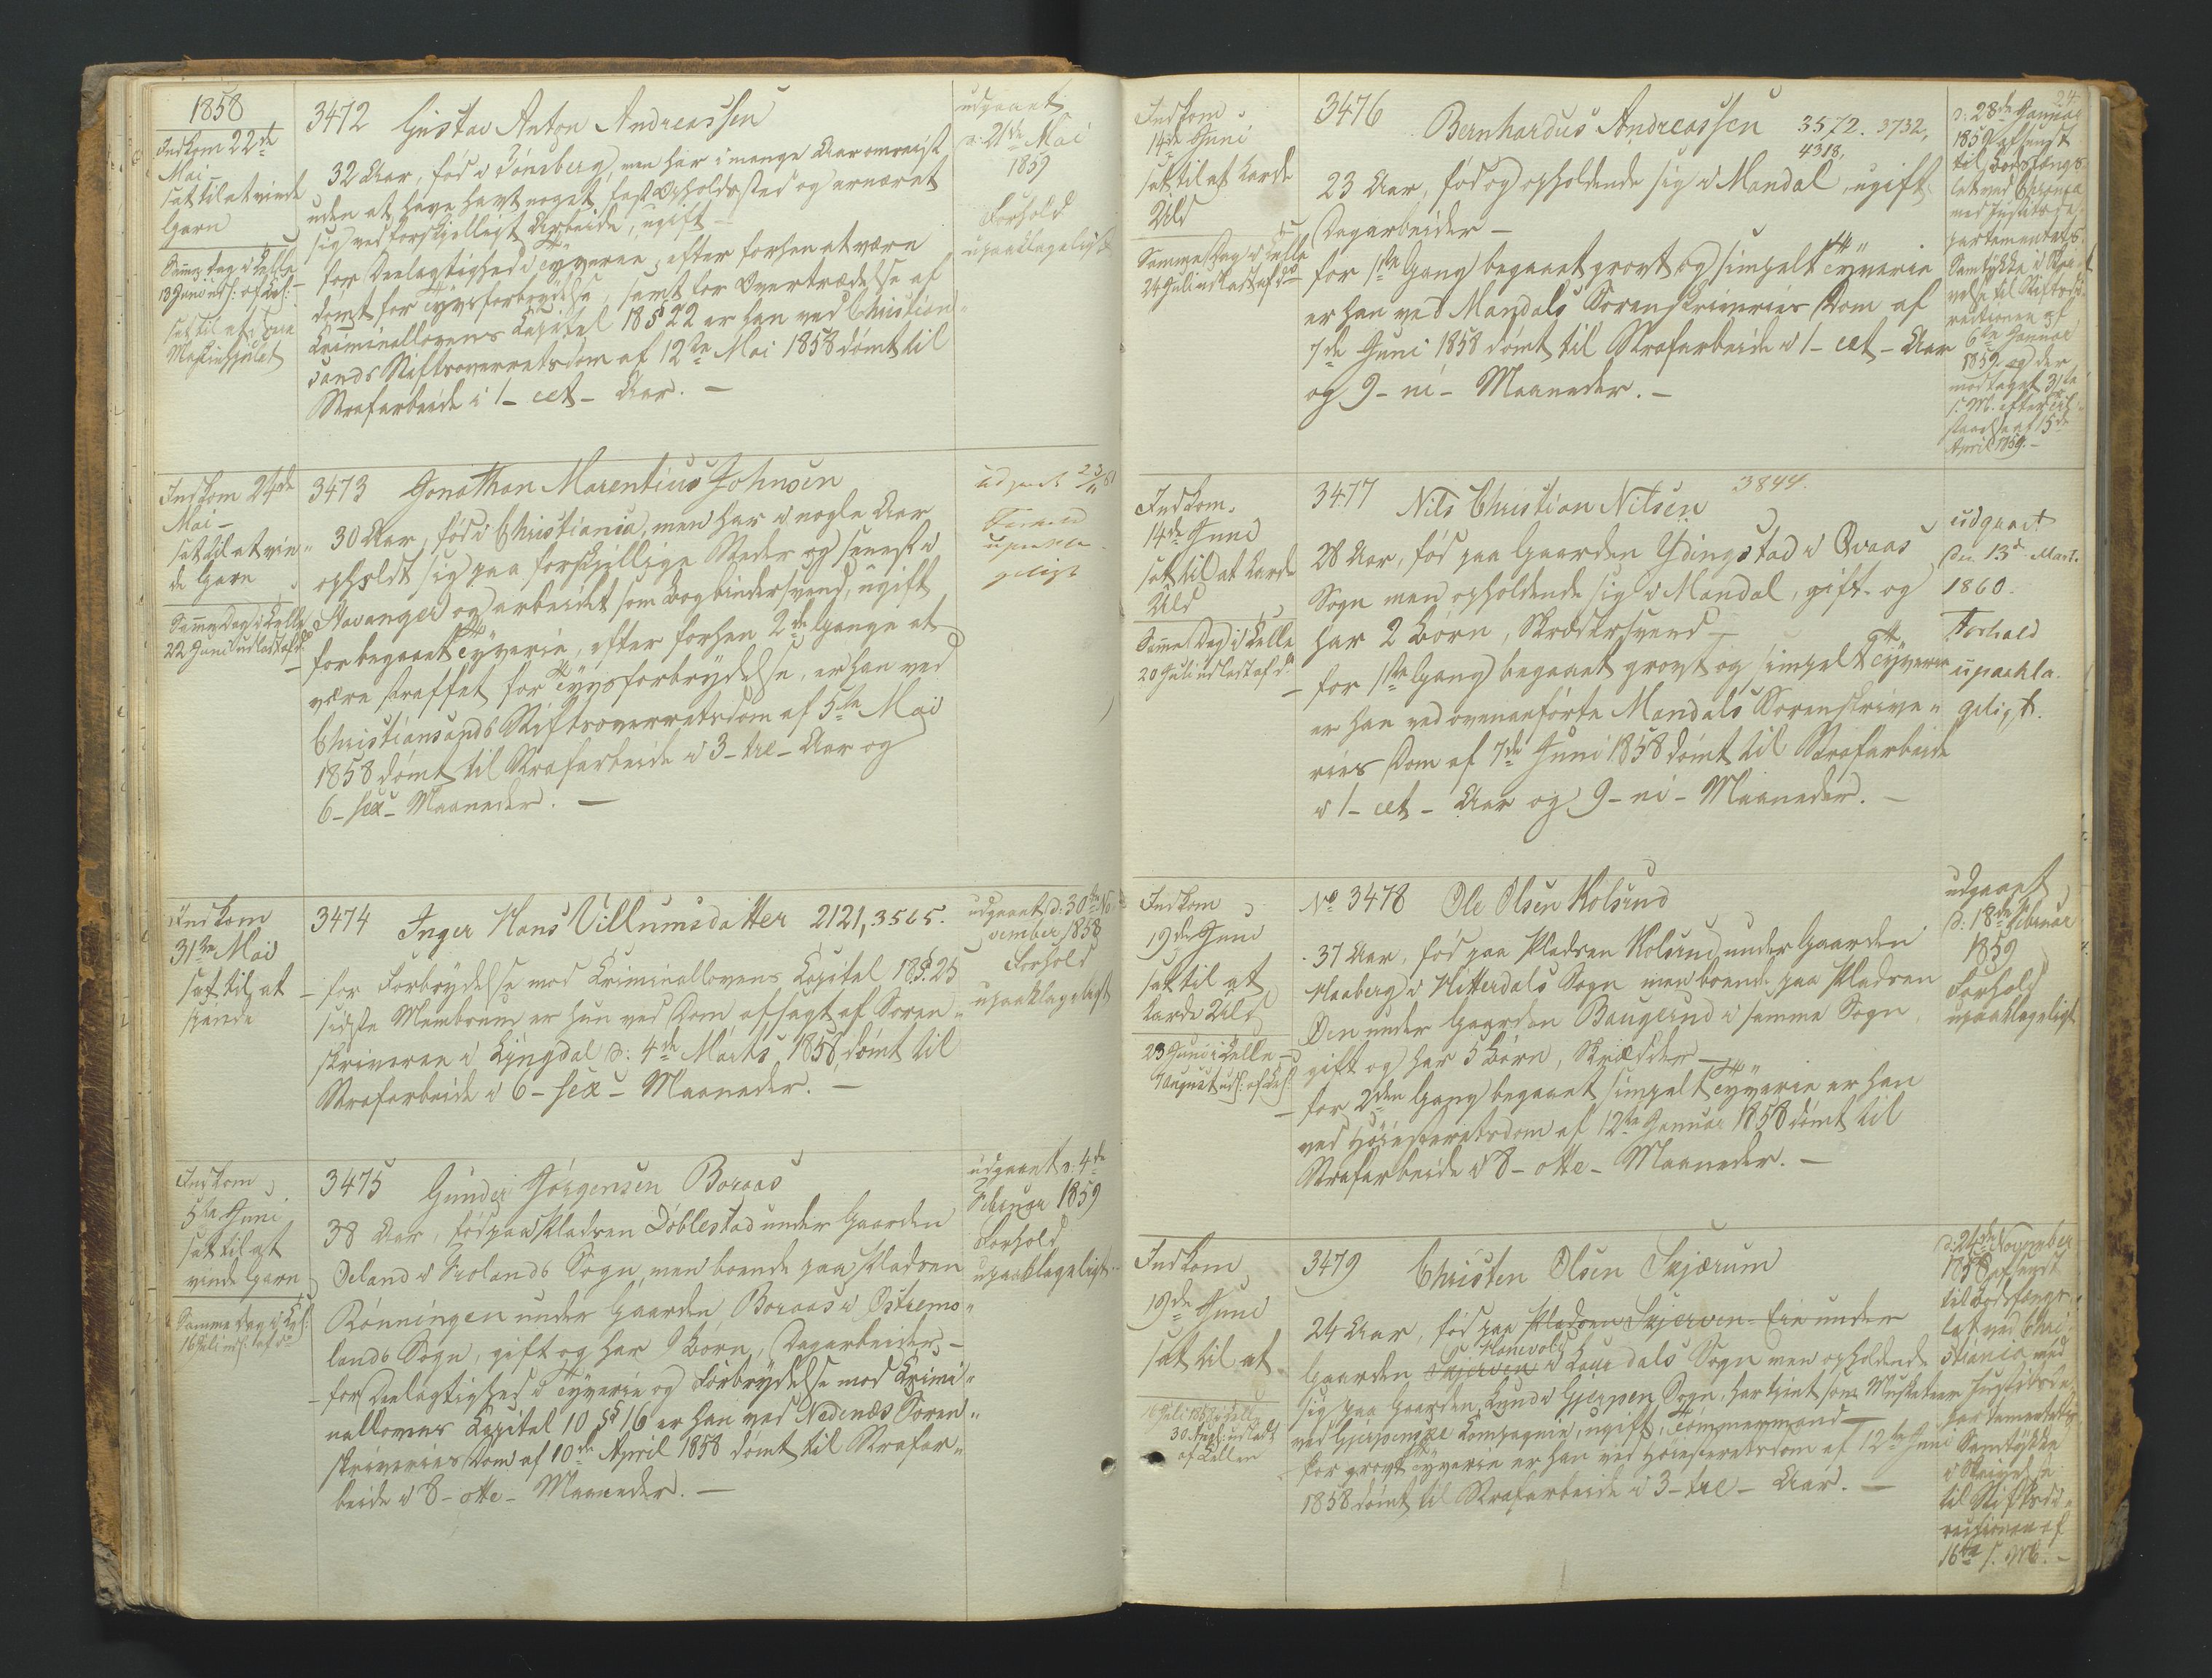 1858
Indkom 22de
Mai -
sat til at vinde
Garn
Samme Dag i Celle
13 Juni uds: af Cel:
sat til at
Maskinhjulet
3472 Gustav Anton Andreassen
32 Aar, fød i Tønsberg, men har i mange Aar omreist
uden at have havt noget fast Opholdssted og ernæret
sig ved forskjelligt Arbeide, ugift -
for Deelagtighed i Tyverie, efter forhen at være
dømt for Tyvsforbrydelse, samt for Overtrædelse af
Criminallovens Capitel 18 § 22 er han ved Christian„
sands Stiftsoverretsdom af 12te Mai 1858 dømt til
Strafarbeide i 1 - eet - Aar. -
udgaaet
d: 21de Mai
1859
Forhold
upaaklageligt
Indkom 24de
Mai -
sat til at vin„
de Garn
Samme Dag i Celle
22 Juni udladt af do
3473 Jonathan Marentius Johnsen
30 Aar, fød i Christiania, men har i nogle Aar
opholdt sig paa forskjellige Steder og senest i
Stavanger og arbeidet som Bogbindersvend, ugift
for begaaet Tyverie, efter forhen 2de Gange at
være straffet for Tyvsforbrydelse, er han ved
Christiansands Stiftsoverretsdom af 5te Mai
1858 dømt til Strafarbeide i 3 - tre - Aar og
6 - sex - Maaneder. -
udgaaet 23/11 61
Forhold
upaakla-
geligt
Indkom
31te Mai
sat til at
spinde
3474 Inger Hans Villumsdatter 2121, 3565.
- for Forbrydelse mod Criminallovens Capitel 18 § 25
sidste Membrum er hun ved Dom afsagt af Soren„
skriveren i Lyngdal d: 4de Marts 1858 dømt til
Strafarbeide i 6 - sex - Maaneder. -
udgaaet d: 30te No„
vember 1858
Forhold
upaaklageligt
Indkom
5te Juni
sat til at
vinde Garn
Samme Dag i Cel:
16 Juli uds: af do
3475 Gunder Jørgensen Boraas
38 Aar, fød paa Pladsen Døblestad under Gaarden
Oeland i Frolands Sogn, men boende paa Pladsen
Rønningen under Gaarden Boraas i Østremo„
lands Sogn, gift og har 9 Børn, Dagarbeider -
- for Deelagtighed i Tyverie og Forbrydelse mod Crimi„
nallovens Capitel 10 §§ 16 er han ved Nedenæs Soren„
skriveries Dom af 10de April 1858 dømt til Strafar„
beide i 8 - otte - Maaneder. -
udgaaet d: 4de
Februar 1859
Forhold
upaaklageligt
24
Indkom
14de Juni
sat til at karde
Uld
Samme Dag i Celle
26 Juli udladt af do
3476 Bernhardus Andreassen 3572. 3732,
4318,
23 Aar, fød og opholdende sig i Mandal, ugift
Dagarbeider -
for 1ste Gang begaaet grovt og simpelt Tyverie
er han ved Mandals Sorenskriveries Dom af
7de Juni 1858 dømt til Strafarbeide i 1 - eet - Aar
og 9 - ni - Maaneder. -
d: 28de Januar
1859 afsendt
til Bodsfængs„
let ved Christia
med Justitsde„
partementets
Samtykke i Skri„
velse til Stiftsdi„
rectionen af
6te Januar
1859. og der
modtaget 31te
s. M. efter
af 15de
April 1859. -
Indkom
14de Juni
sat til at karde
Uld
Samme Dag i Celle
20 Juli udladt af do
3477 Nils Christian Nilsen 3844.
28 Aar, fød paa Gaarden Ydingstad i Qvaas
Sogn men opholdende sig i Mandal, gift og
har 2 Børn, Skrædersvend -
for 1ste Gang begaaet grovt og simpelt Tyverie
er han ved ovenanførte Mandals Sorenskrive„
ries Dom af 7de Juni 1858 dømt til Strafarbeide
i 1 - eet - Aar og 9 - ni - Maaneder. -
udgaaet
den 13de Mart.
1860.
Forhold
upaakla-
geligt.
Indkom
19de Juni
sat til at
karde Uld
23 Juni i Celle -
7 August uds: af Cel:
No 3478 Ole Olsen Kolsrud
37 Aar, fød paa Pladsen Kolsrud under Gaarden
Haaberg i Hitterdals Sogn men boende paa Pladsen
Øen under Gaarden Baugerud i samme Sogn,
gift og har 5 Børn, Skrædder -
- for 2den Gang begaaet simpelt Tyverie er han
ved Høiesteretsdom af 12te Januar 1858 dømt til
Strafarbeide i 8 - otte - Maaneder. -
udgaaet
d: 18de Februar
1859
Forhold
upaaklageligt
Indkom
19de Juni
sat til at
16 Juli 1858 i Celle
30 Aug: udladt
af Cellen
3479 Christen Olsen Skjærum
24 Aar, fød paa Pladsen Skjerven Eie under
Homvold
Gaarden Skjerven i Laurdals Sogn men opholdende
sig paa Gaarden Lund i Gjerpen Sogn, har tjent som Musketeer
ved Gjerpenske Compagnie, ugift, Tømmermand -
- for grovt Tyverie er han ved Høiesteretsdom af 12te Juni
1858 dømt til Strafarbeide i 3 - tre - Aar. -
d: 24de November
1858 afsendt
til Bodsfængs„
let ved Chri„
stiania med
Justitsde„
partementets
Samtykke
i Skrivelse
til Stiftsdi„
rectionen af
16de s. M. -